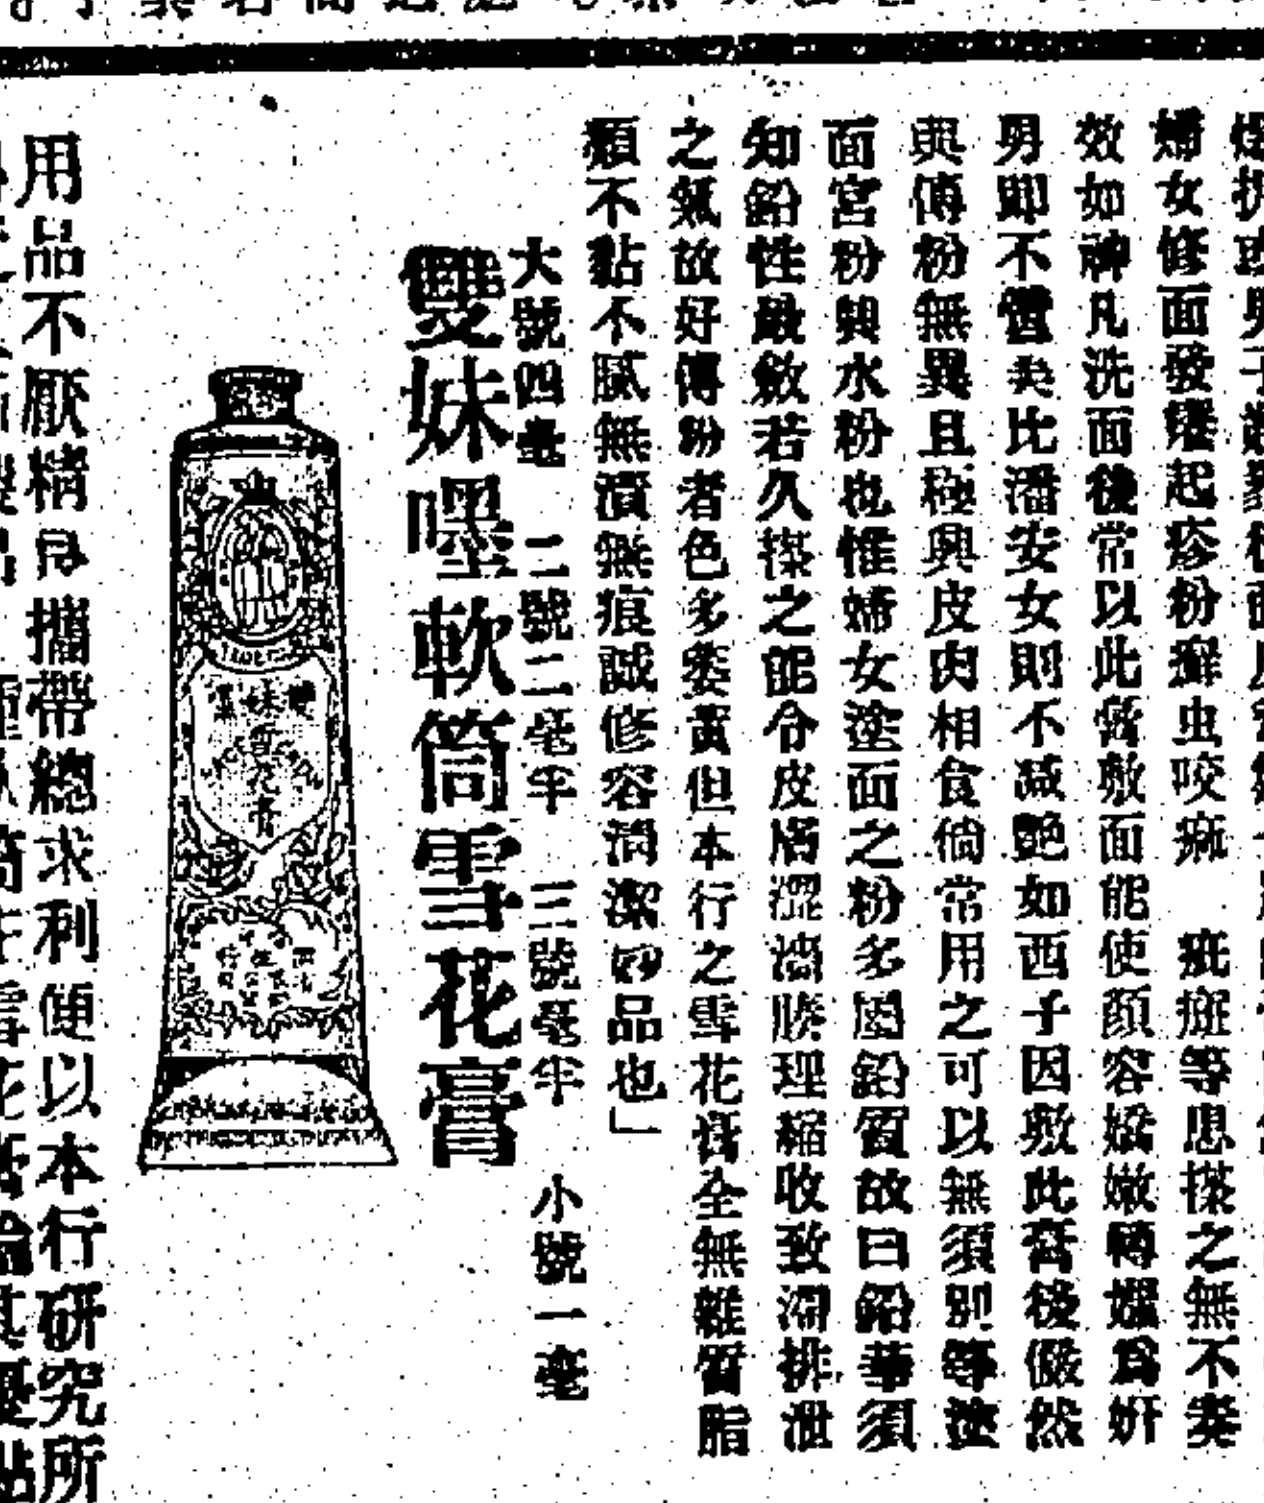 婦女修面發癢起疹粉癬虫咬痲 疵斑等患搽之無不奏
效如神凡洗面後常以此膏敷面能使顏容嬌嫩轉媸爲妍
男即不霄矣比潘安女則不减艷如西子因敷此膏後儼然
與傅粉無異且極興皮肉相食倘常用之可以無須別等塗
面宮粉與水粉也惟婦女塗面之粉多屬鉛質故曰鉛華須
知鉛性嚴斂若久搽之能令皮層澀滯腠理縮收致滯排泄
之氣故好傅粉者色多萎黃但本行之雪花膏全無雜質脂
類不黏不膩無漬無痕誠修容潤潔妙品也」
大號四毫 二號二毫半 三號毫半 小號一毫
雙妹嚜軟筒雪花膏
用品不厭精良攜帶總求利便以本行研究所